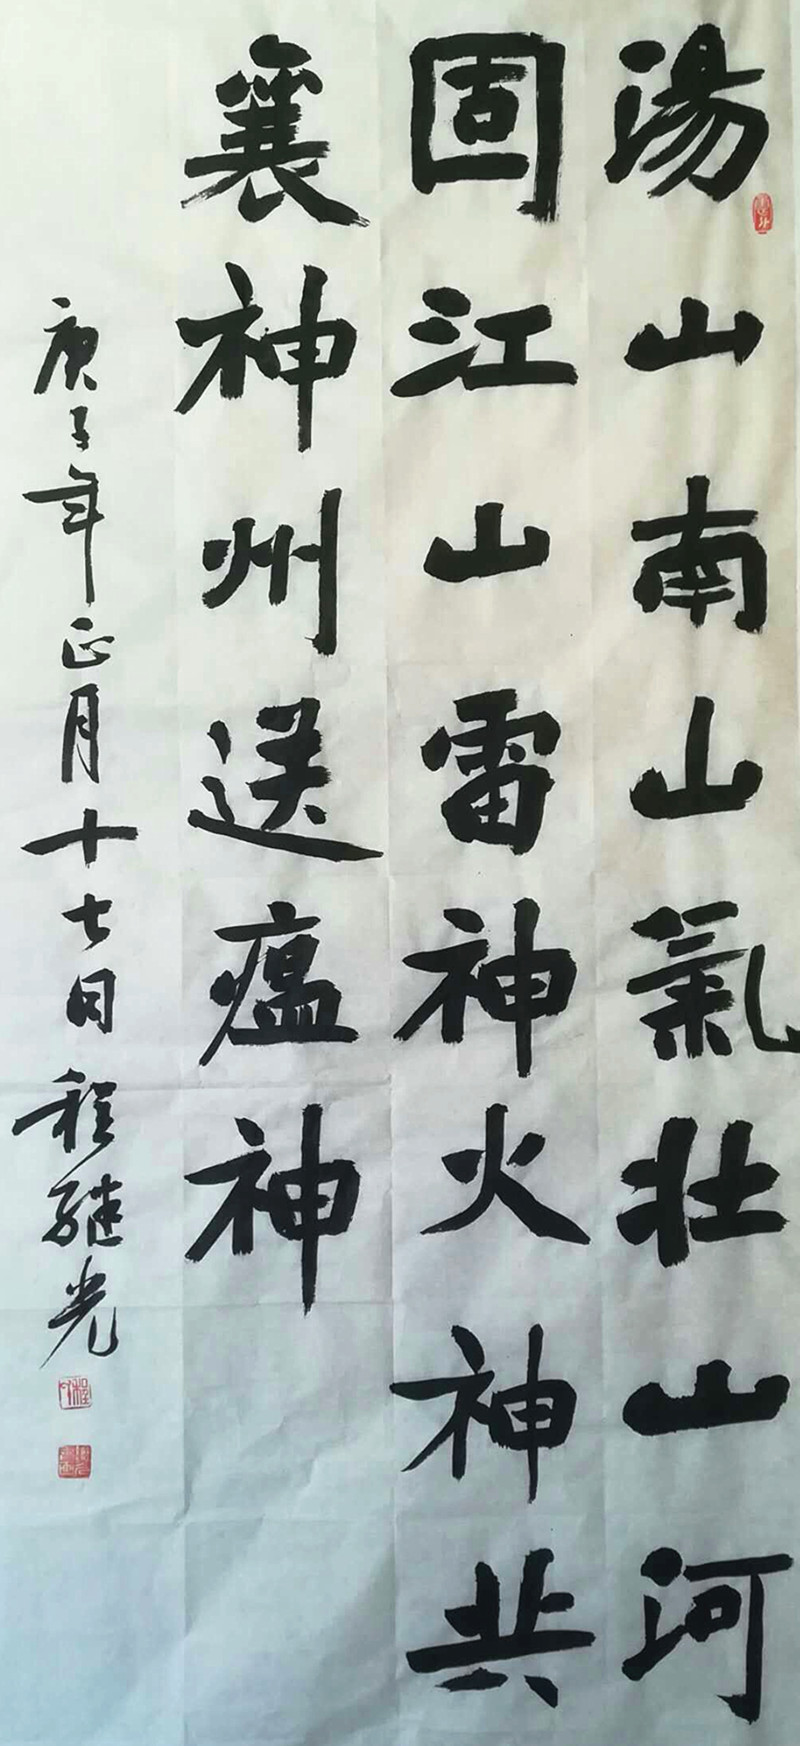 湯山南山氣壯山河
固江山雷神火神共
襄神州送瘟神
庚子年正月十七日程継光